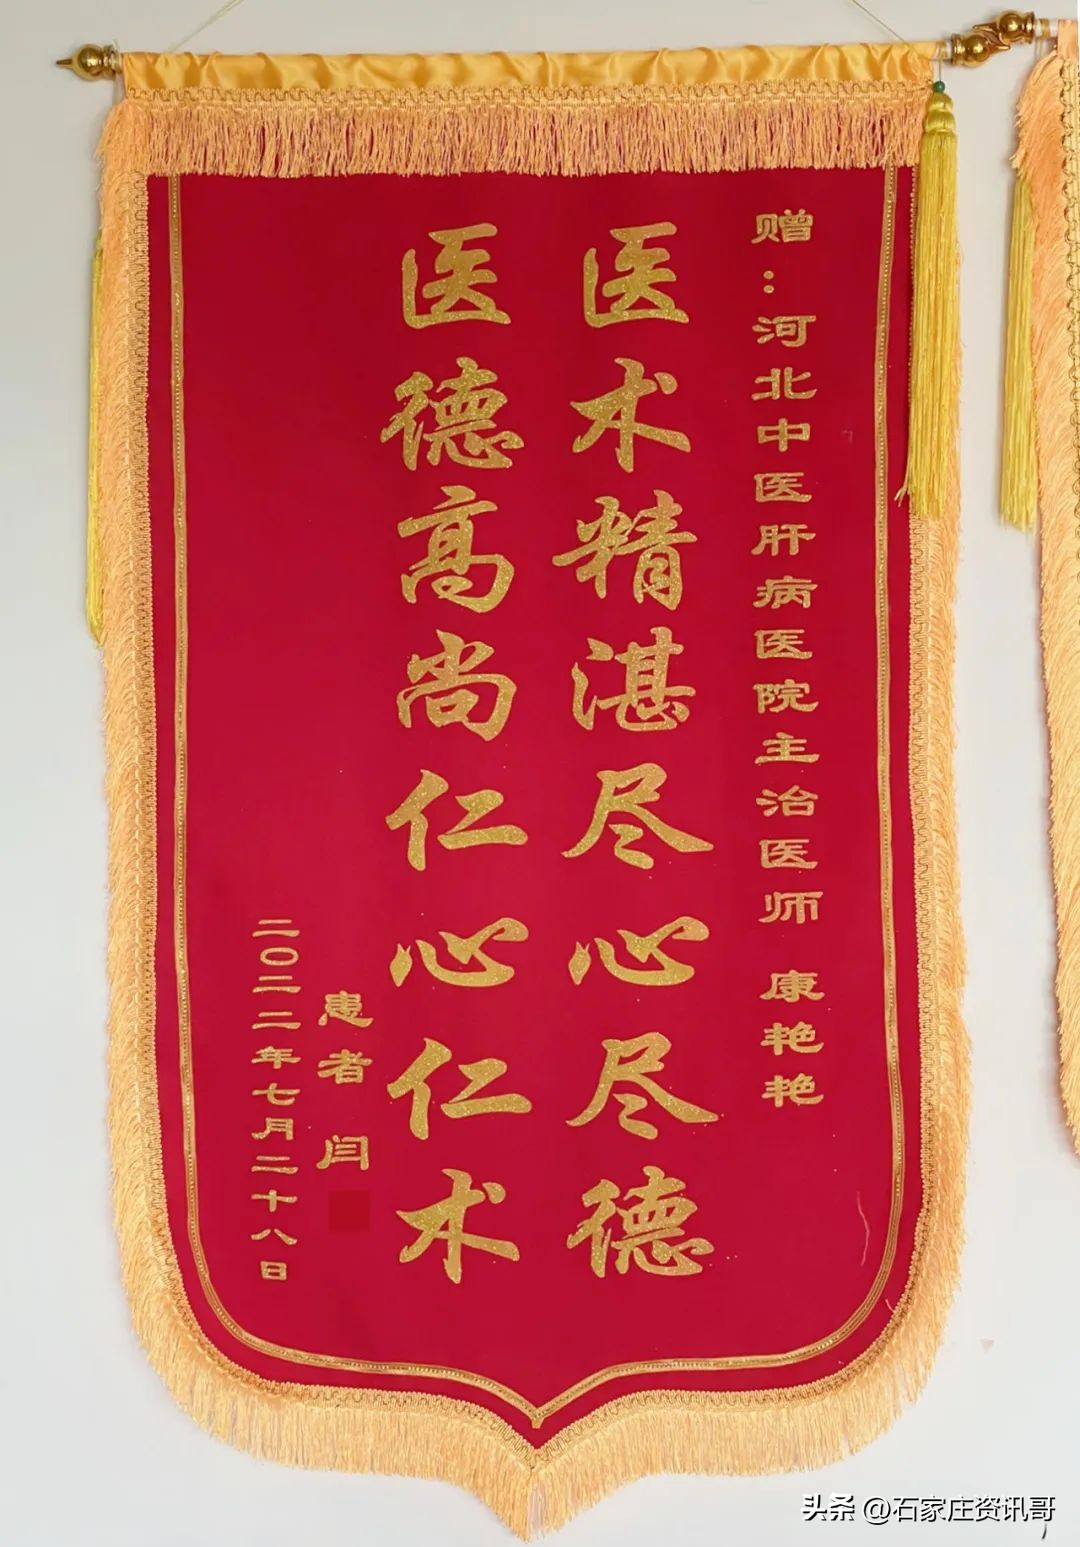 赠：河北中医肝病医院主治医师 康艳艳
医术精湛尽心尽德
医德高尚仁心仁术
患者 闫
二〇二二年七月二十八日
头条 @石家庄资讯哥